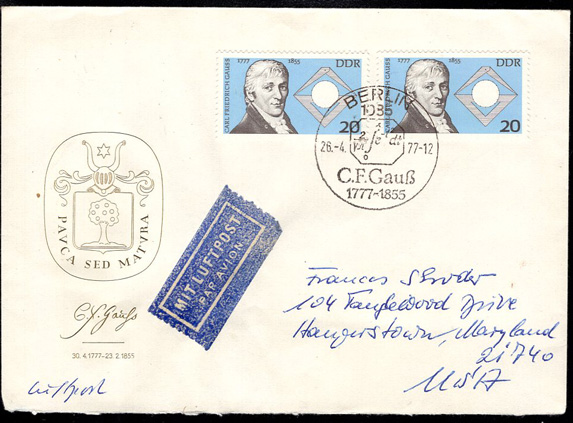 CARL FRIEDRICH GAUSS
1777 1855
DDR
20
CARL FRIEDRICH GAUSS
1777 1855
DDR
20
BERLIN
1085
26.-4. 77-12
C.F.Gauß
1777-1855
PAVCA SED MATVRA
C. F. Gauß
30. 4. 1777–23. 2. 1855
MIT LUFTPOST
PAR AVION
Luftpost
Frances
104 Tanglewood Drive
Hangerstown, Maryland
21740
USA